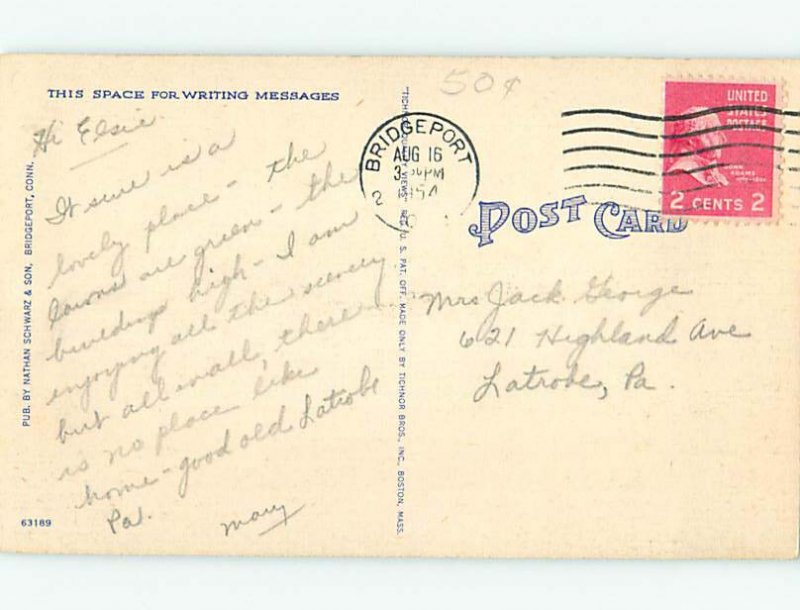 50¢
THIS SPACE FOR WRITING MESSAGES
Hi Elsie
It sure is a
lovely place - the
lawns are green - the
buildings high - I am
enjoying all the scenery
but all in all, there
is no place like
home - good old Latrobe
Pa.
Mary
PUB. BY NATHAN SCHWARZ & SON, BRIDGEPORT, CONN.
63189
"TICHNOR QUALITY VIEWS" REG. U. S. PAT. OFF. MADE ONLY BY TICHNOR BROS., INC., BOSTON, MASS.
BRIDGEPORT
AUG 16
PM
2
POST CARD
UNITED
STATES
POSTAGE
JOHN
ADAMS
2 CENTS 2
Mrs Jack George
621 Highland Ave
Latrobe, Pa.